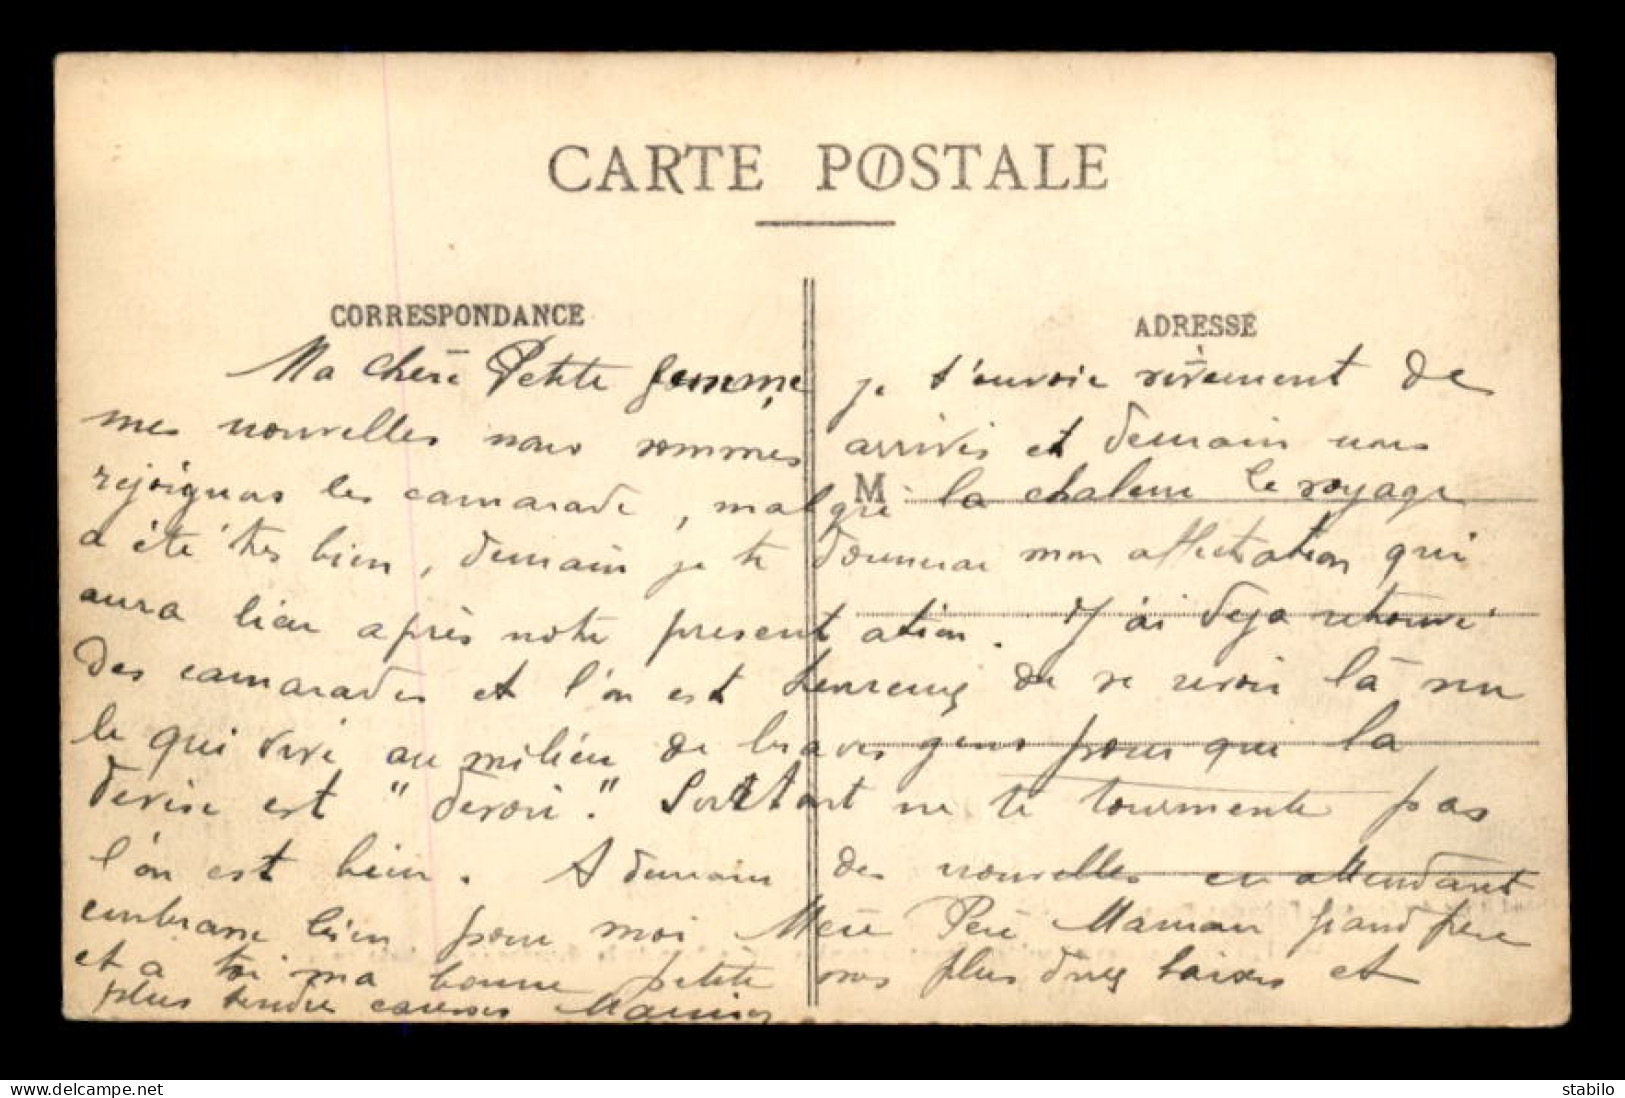 CARTE POSTALE
CORRESPONDANCE
ADRESSE
Ma chère Petite femme je t'envoie vivement de
mes nouvelles nous sommes arrivés et demain nous
rejoignons les camarade, malgré la chaleur le voyage
M
a été très bien, demain je te donnerai mon affectation qui
aura lieu après notre présentation. J'ai deja retrouvé
des camarades et l'on est heureux de se revoir là on
le qui vive au milieu de braves gens pour que la
devise est "devoir". Surtout ne te tourmente pas
l'on est bien. A demain des nouvelles en attendant
embrasse bien pour moi Mère Père Maman grand père
et a toi ma bonne petite mes plus doux baisers et
plus tendre caresses Maurice
delcampe.net
stabilo